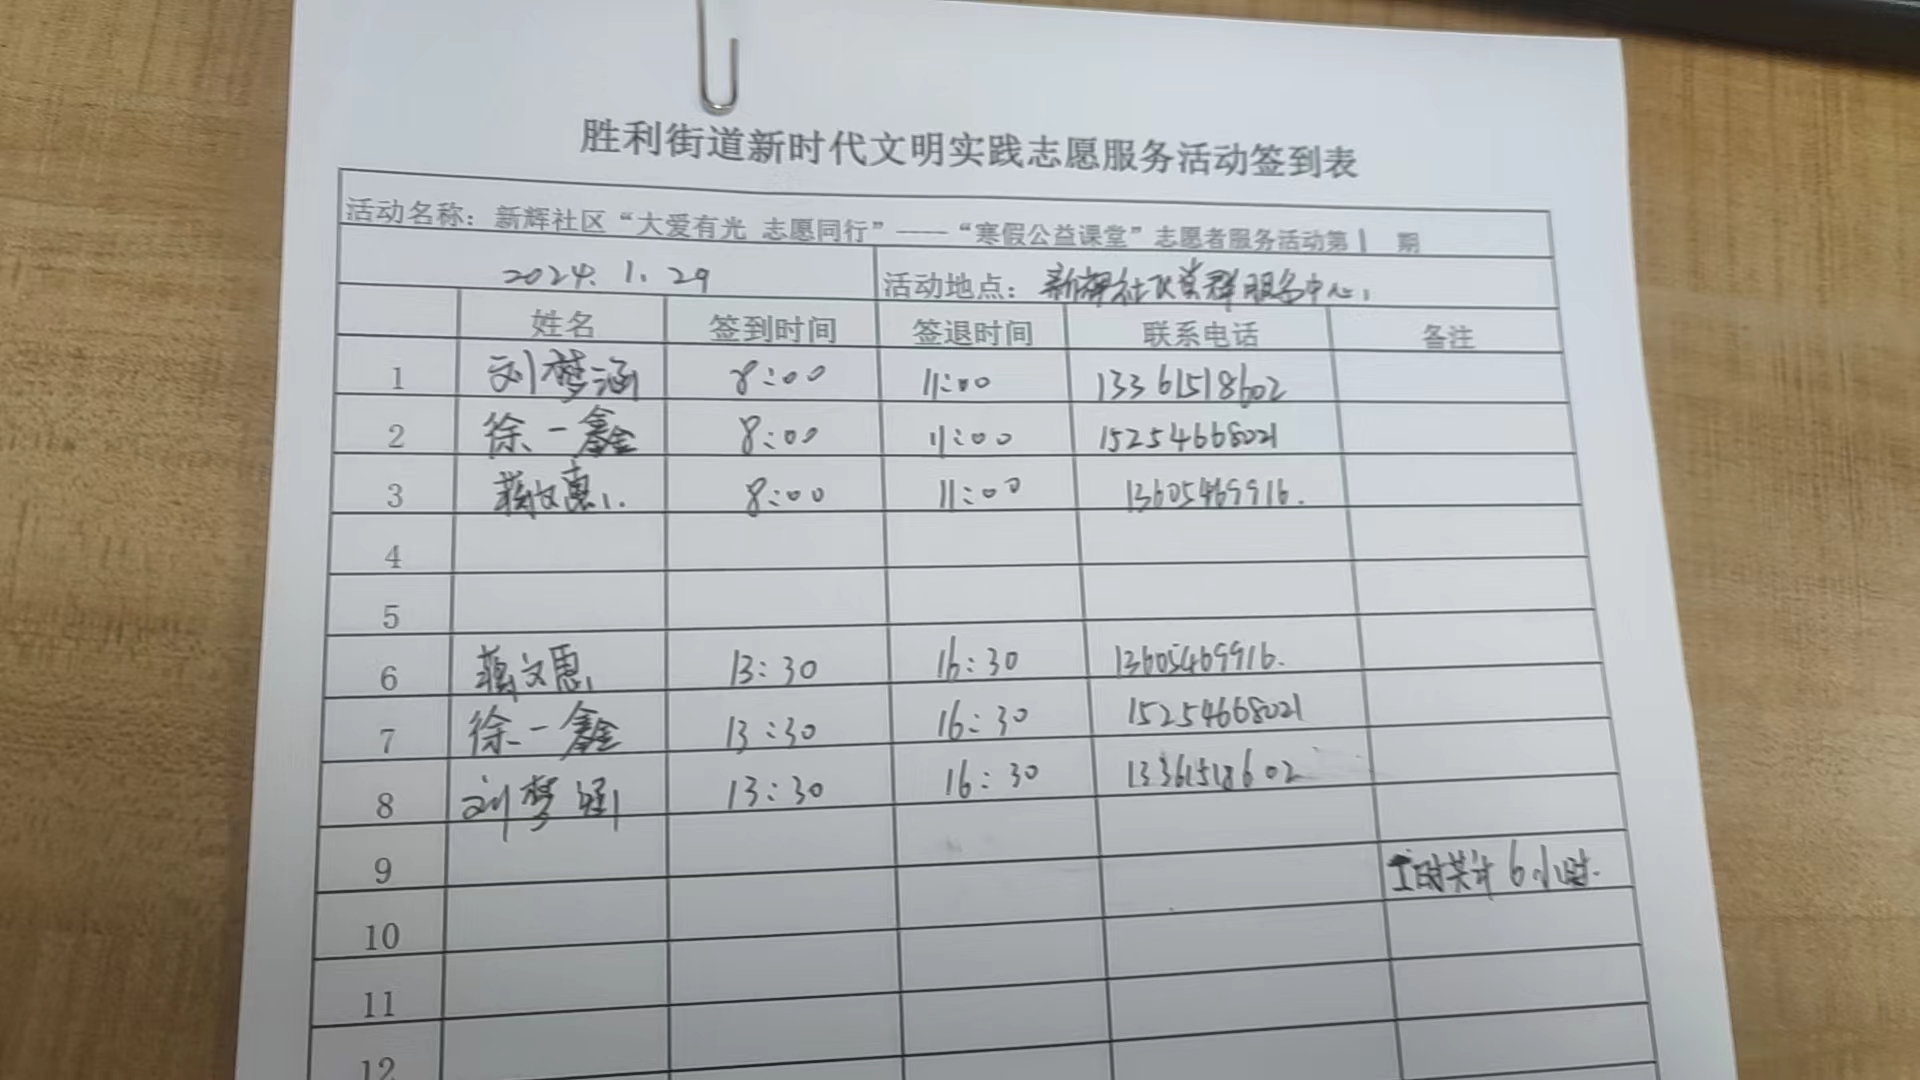 胜利街道新时代文明实践志愿服务活动签到表
活动名称：新辉社区“大爱有光 志愿同行”——“寒假公益课堂”志愿者服务活动第1 期
2024.1.29 活动地点：新辉社区党群服务中心
姓名 签到时间 签退时间 联系电话 备注
1 刘梦涵 8:00 11:00 13361518602
2 徐一鑫 8:00 11:00 15254668021
3 蒋文惠 8:00 11:00 13605469916.
4
5
6 蒋文惠 13:30 16:30 13605469916.
7 徐一鑫 13:30 16:30 15254668021
8 刘梦涵 13:30 16:30 13361518602
9 工时共计6小时.
10
11
12